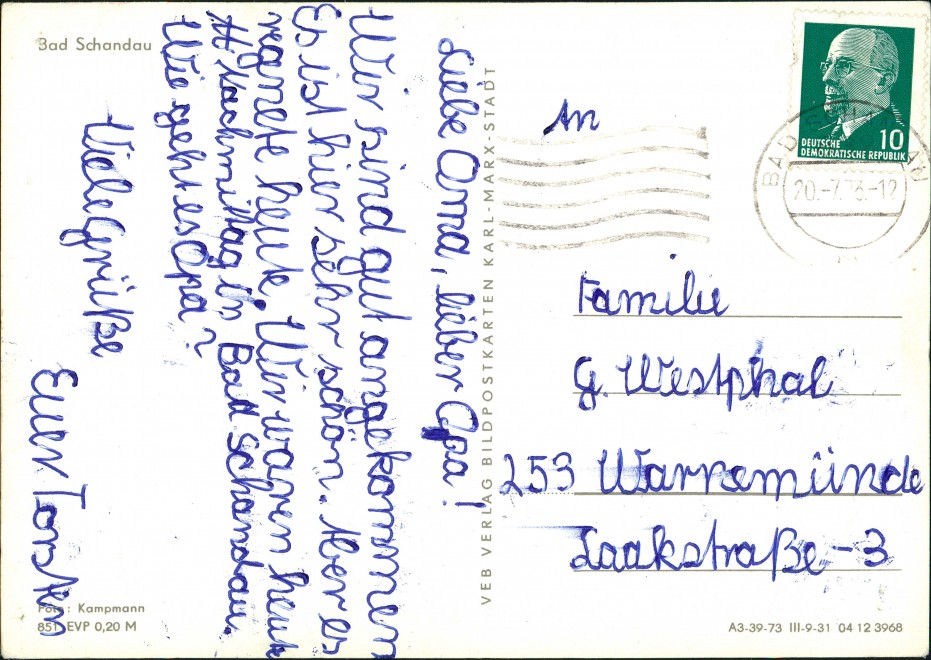 Bad Schandau
Liebe Oma, lieber Opa!
Wir sind gut angekommen
Es ist hier sehr schön. Aber es
regnete heute. Wir waren heute
Nachmittag in Bad Schandau.
Wie geht es Opa?
Viele Grüße
Euer Torsten
Foto: Kampmann
851 EVP 0,20 M
VEB VERLAG BILDPOSTKARTEN KARL-MARX-STADT
DEUTSCHE
DEMOKRATISCHE REPUBLIK
10
BAD SCHANDAU
20.-7.73-12
An
Familie
G. Westphal
253 Warnemünde
Laakstraße-3
A3-39-73 III-9-31 04 12 3968